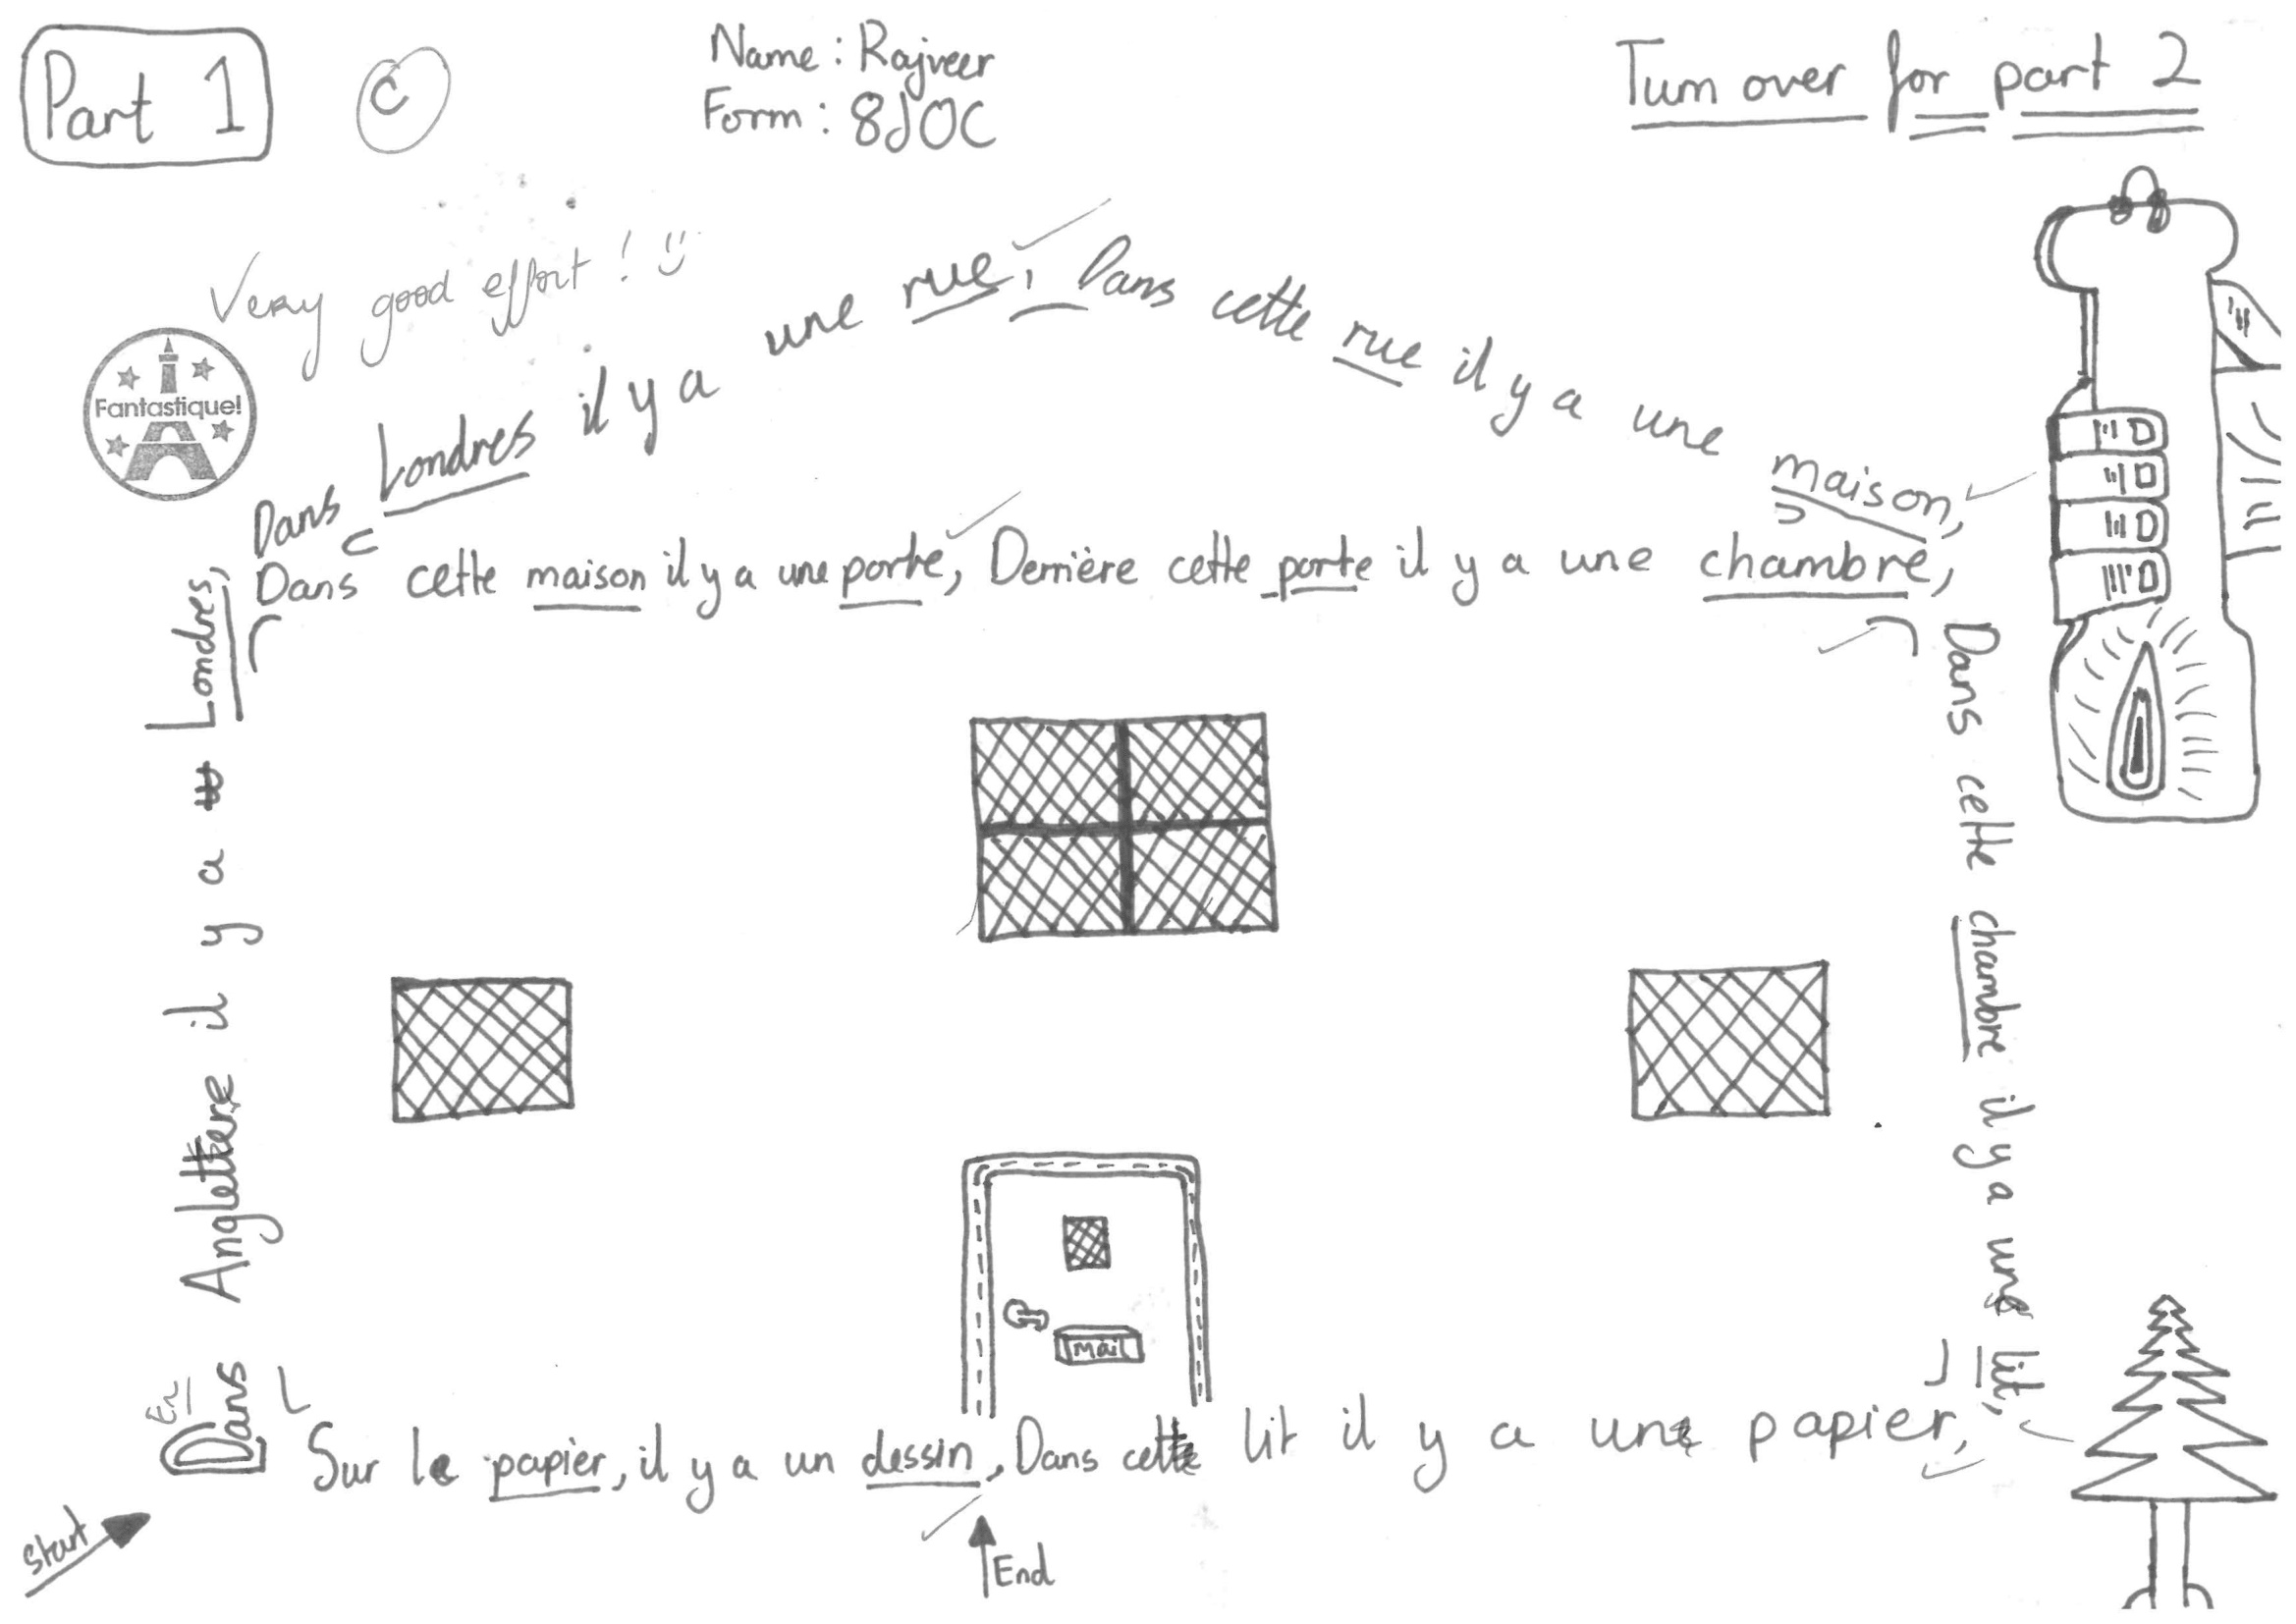 Part 1
C
Name : Rajveer
Form : 8JOC
Turn over for part 2
Very good effort ! :)
Fantastique!
Start
En
Dans Anglettere il y a Londres,
Dans Londres il y a une rue, Dans cette rue il y a une maison,
Dans cette maison il y a une porte, Derrière cette porte il y a une chambre,
Dans cette chambre il y a une lit,
Dans cette lit il y a une papier,
Sur le papier, il y a un dessin,
End
Mail